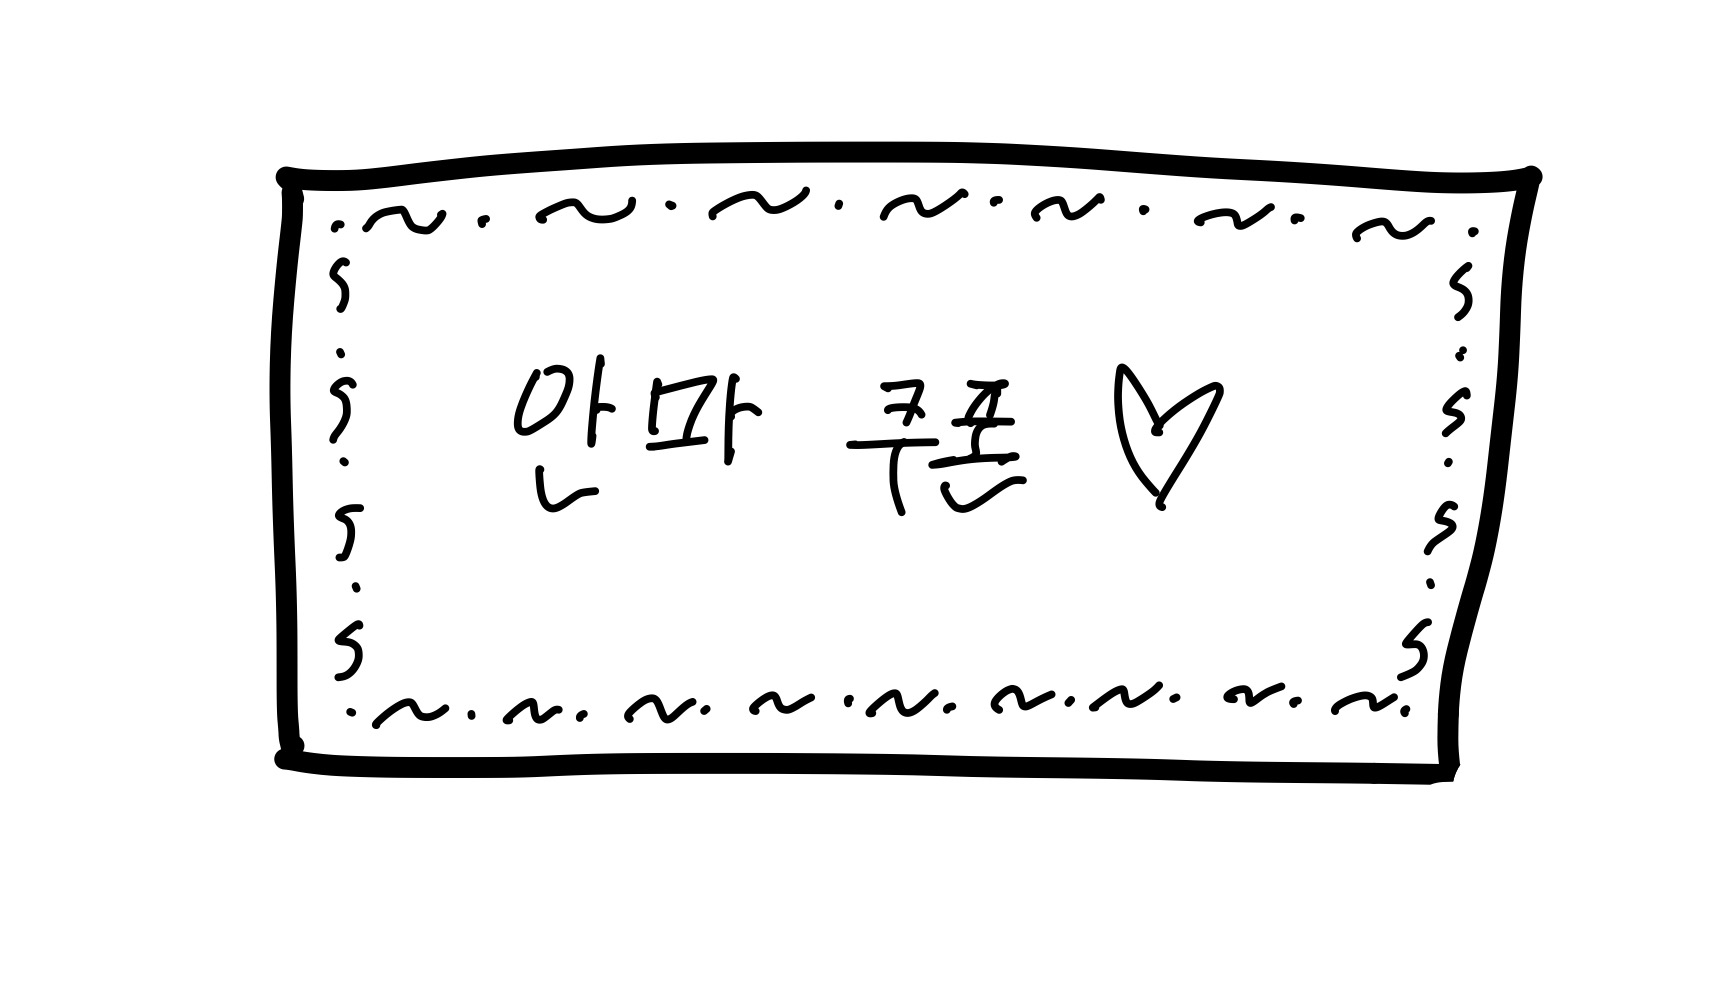 안마 쿠폰 ♡